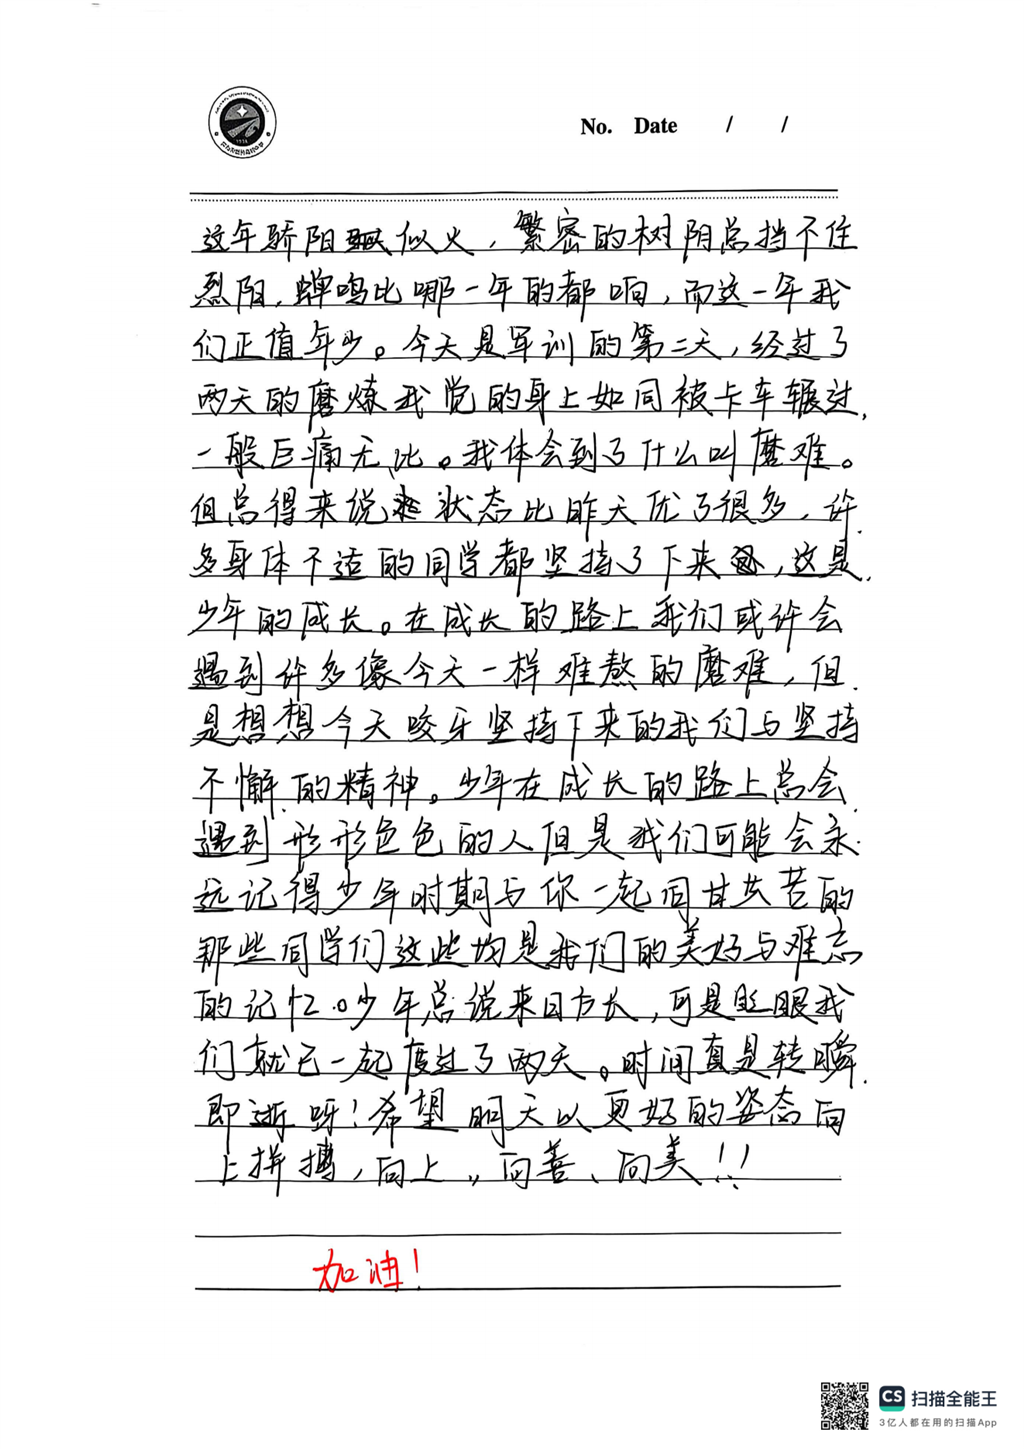 No. Date / /
这年骄阳似火，繁密的树阴总挡不住
烈阳，蝉鸣比哪一年的都响，而这一年我
们正值年少。今天是军训的第二天，经过了
两天的磨炼我觉的身上如同被卡车辗过
一般巨痛无比。我体会到了什么叫磨难。
但总得来说状态比昨天优了很多，许
多身体不适的同学都坚持了下来，这是
少年的成长。在成长的路上我们或许会
遇到许多像今天一样难熬的磨难，但
是想想今天咬牙坚持下来的我们与坚持
不懈的精神。少年在成长的路上总会
遇到形形色色的人但是我们可能会永
远记得少年时期与你一起同甘共苦的
那些同学们这些均是我们的美好与难忘
的记忆。少年总说来日方长，可是眨眼我
们就已一起度过了两天。时间真是转瞬
即逝呀！希望明天以更好的姿态向
上拼搏，向上，向善、向美！！
加油！
CS 扫描全能王
3亿人都在用的扫描App